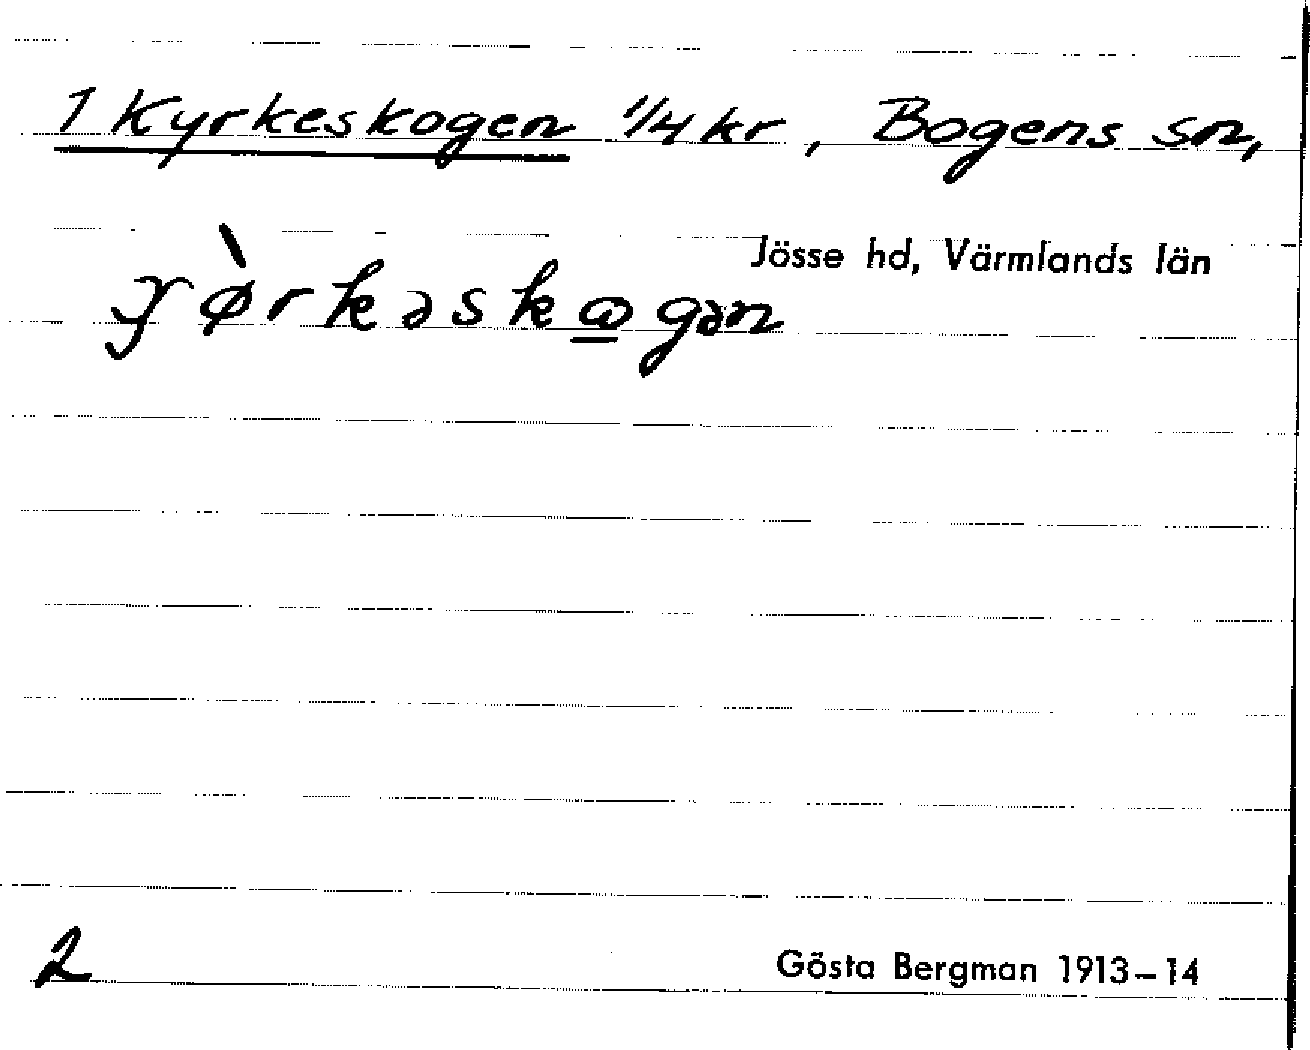 1 Kyrkeskogen 1/4 kr, Bogens sn,
Jösse hd, Värmlands län
ɟø̀rkəskωgən
2
Gösta Bergman 1913–14